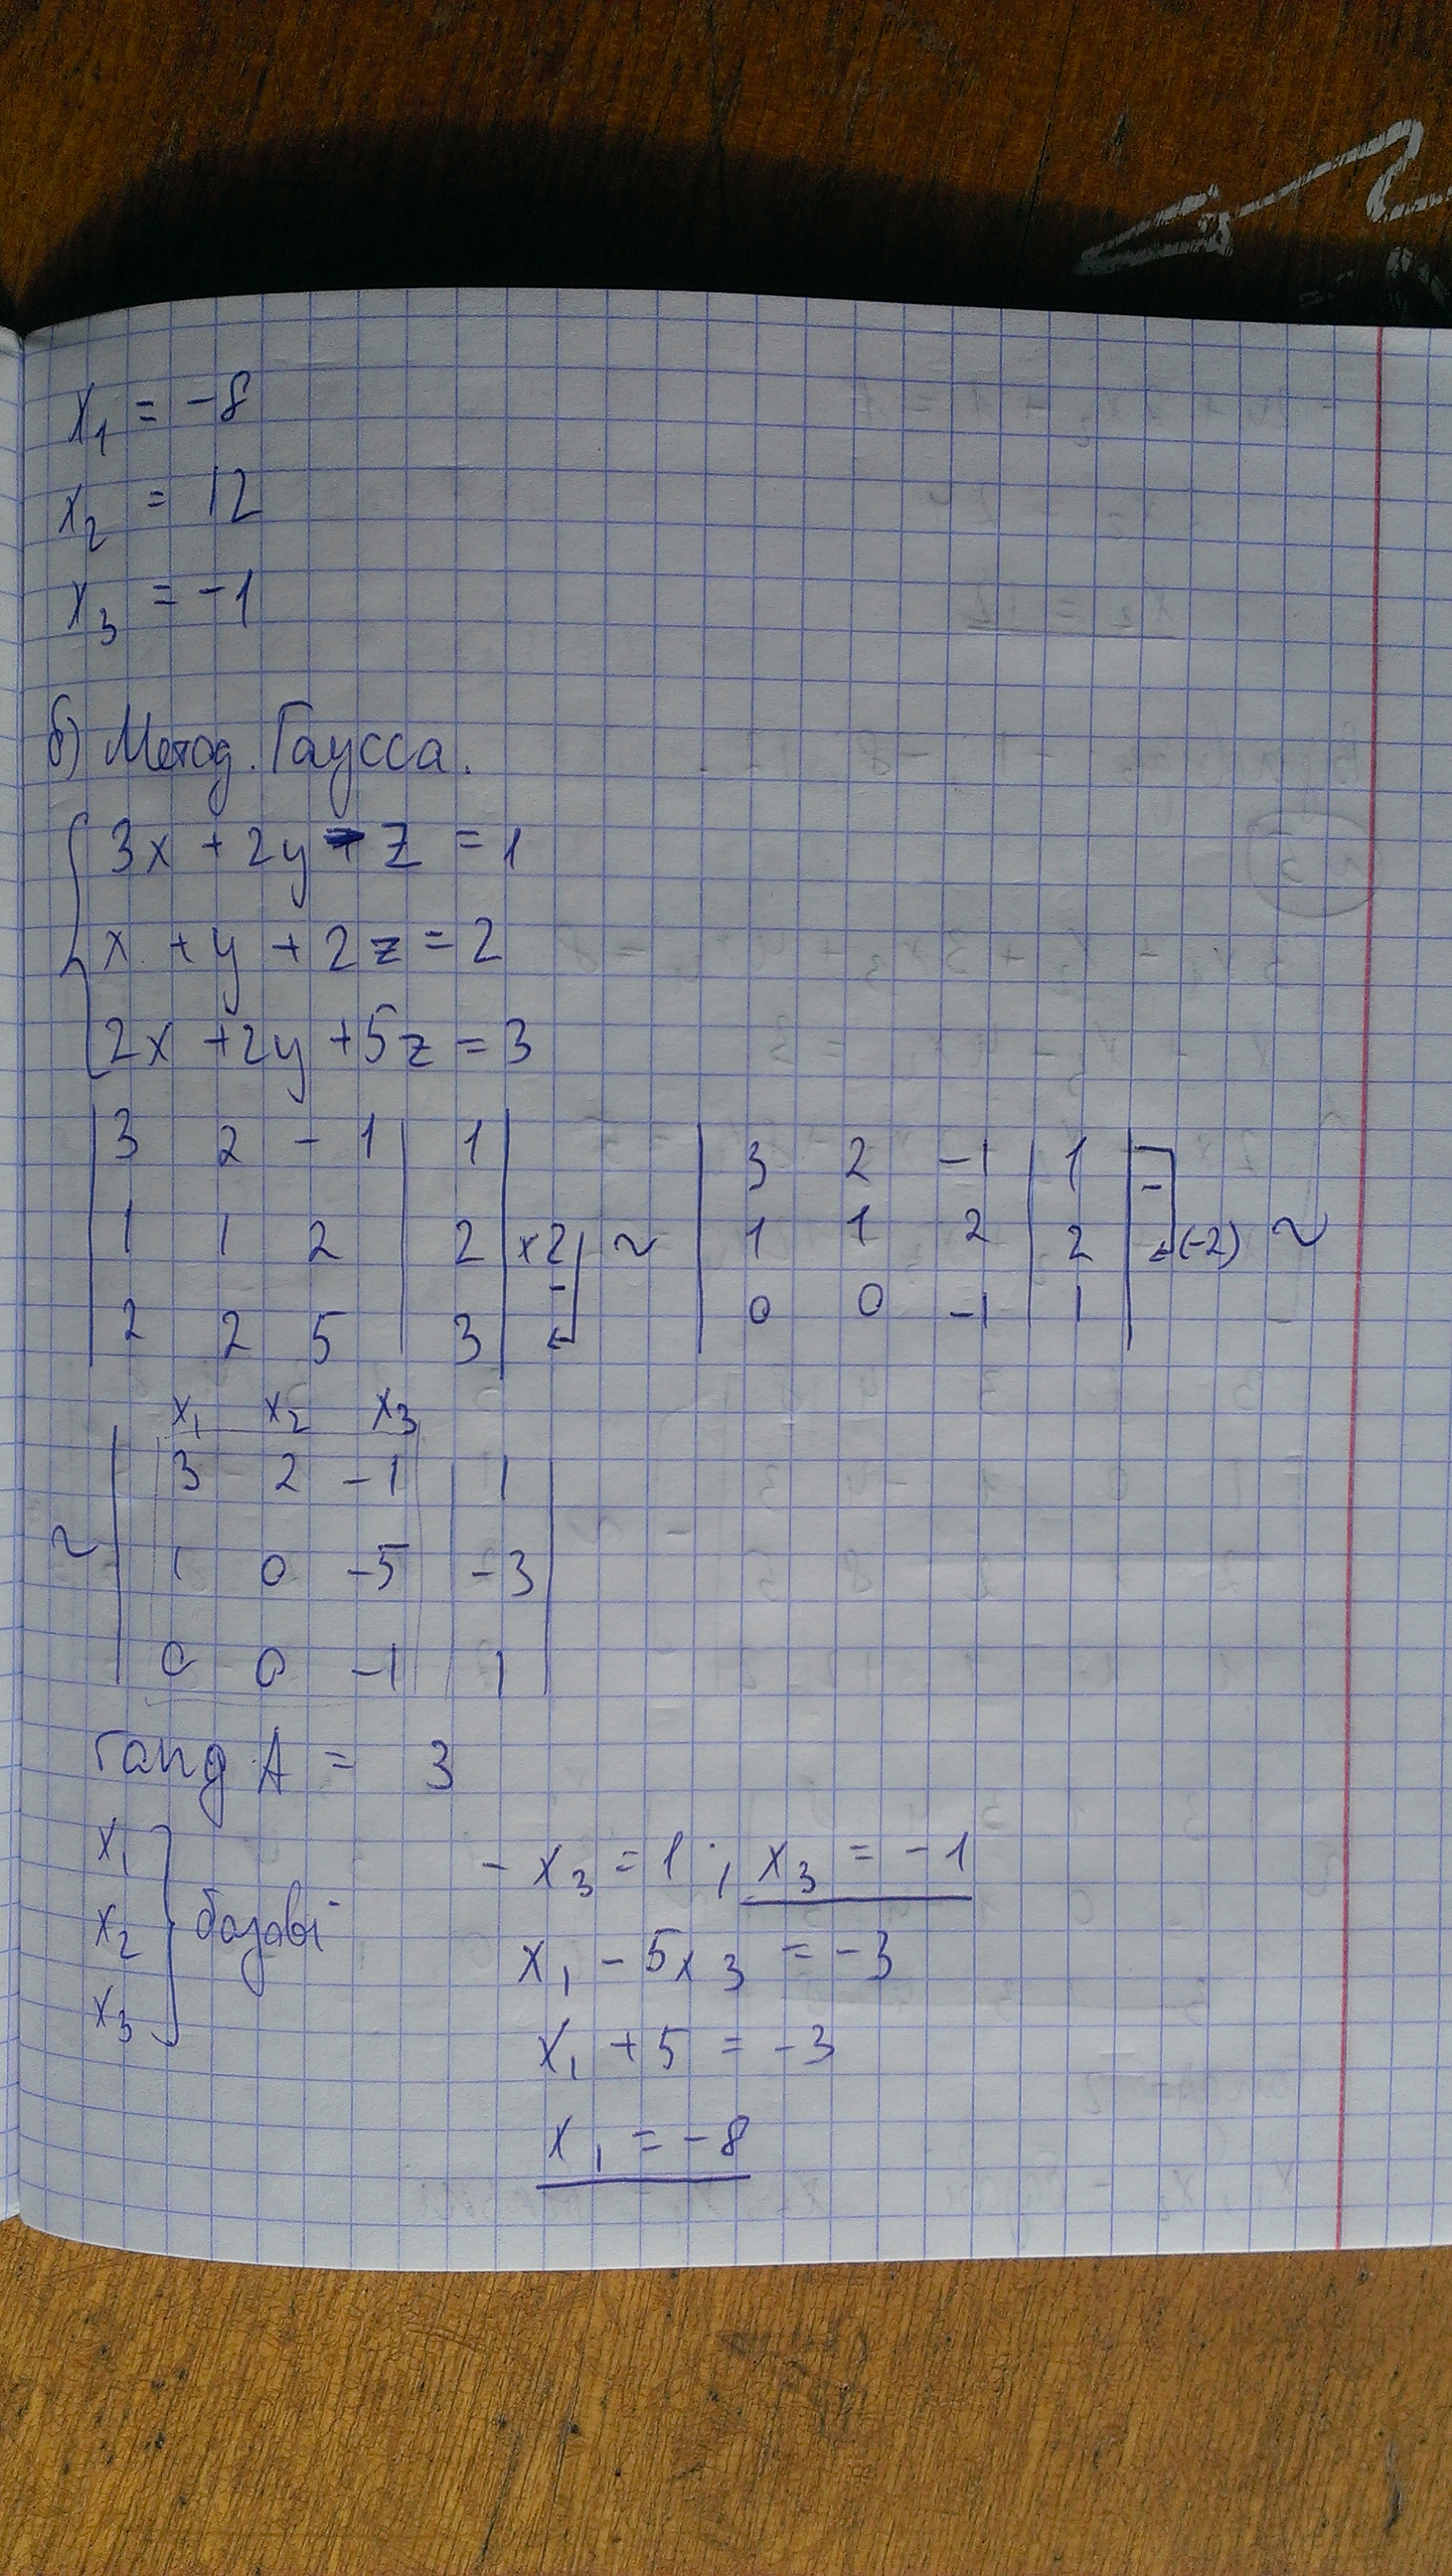 x₁ = -8
x₂ = 12
x₃ = -1
б) Метод. Гаусса.
3x + 2y - z = 1
x + y + 2z = 2
2x + 2y + 5z = 3
| 3 2 -1 | 1 | | 3 2 -1 | 1 | -
| 1 1 2 | 2 | x2 ~ | 1 1 2 | 2 | (-2) ~
| 2 2 5 | 3 | - | 0 0 -1 | 1 |
x₁ x₂ x₃
| 3 2 -1 | 1 |
~ | 1 0 -5 | -3 |
| 0 0 -1 | 1 |
rang A = 3
x₁
x₂ } базові
x₃
-x₃ = 1 ; x₃ = -1
x₁ - 5x₃ = -3
x₁ + 5 = -3
x₁ = -8